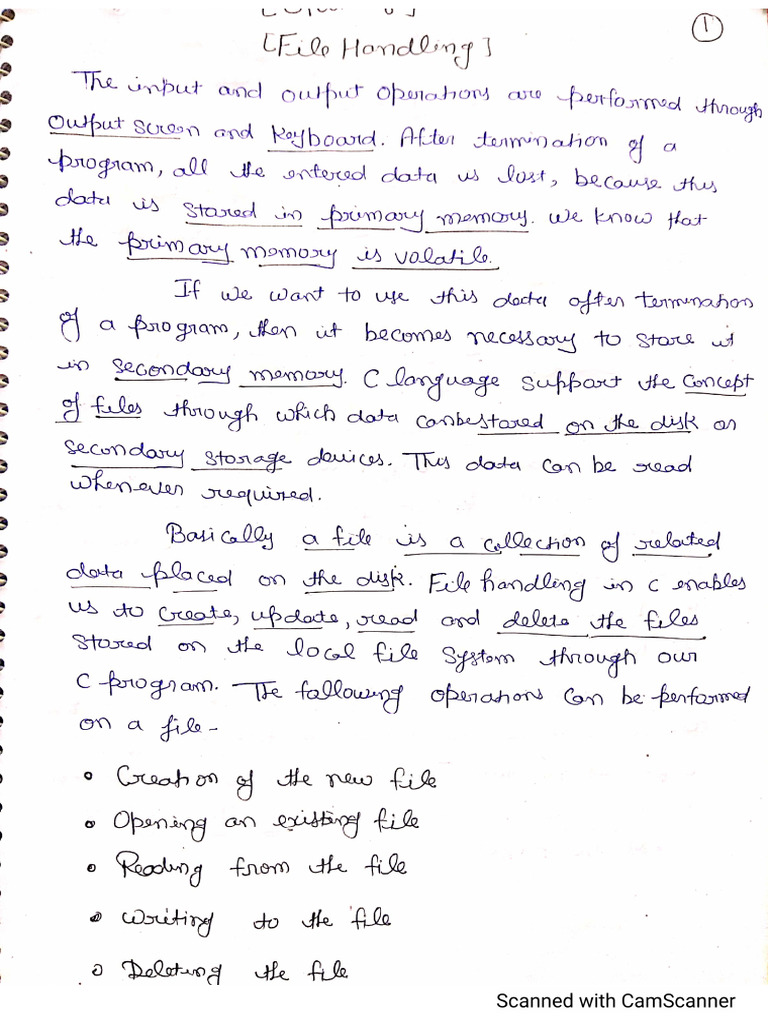 1
[File Handling]
The input and output operations are performed through
output screen and keyboard. After termination of a
program, all the entered data is lost, because this
data is stored in primary memory. We know that
the primary memory is volatile.
If we want to use this data after termination
of a program, then it becomes necessary to store it
in secondary memory. C language support the concept
of files through which data can be stored on the disk or
secondary storage devices. This data can be read
whenever required.
Basically a file is a collection of related
data placed on the disk. File handling in C enables
us to create, update, read and delete the files
stored on the local file system through our
C program. The following operations can be performed
on a file -
• Creation of the new file
• Opening an existing file
• Reading from the file
• Writing to the file
• Deleting the file
Scanned with CamScanner